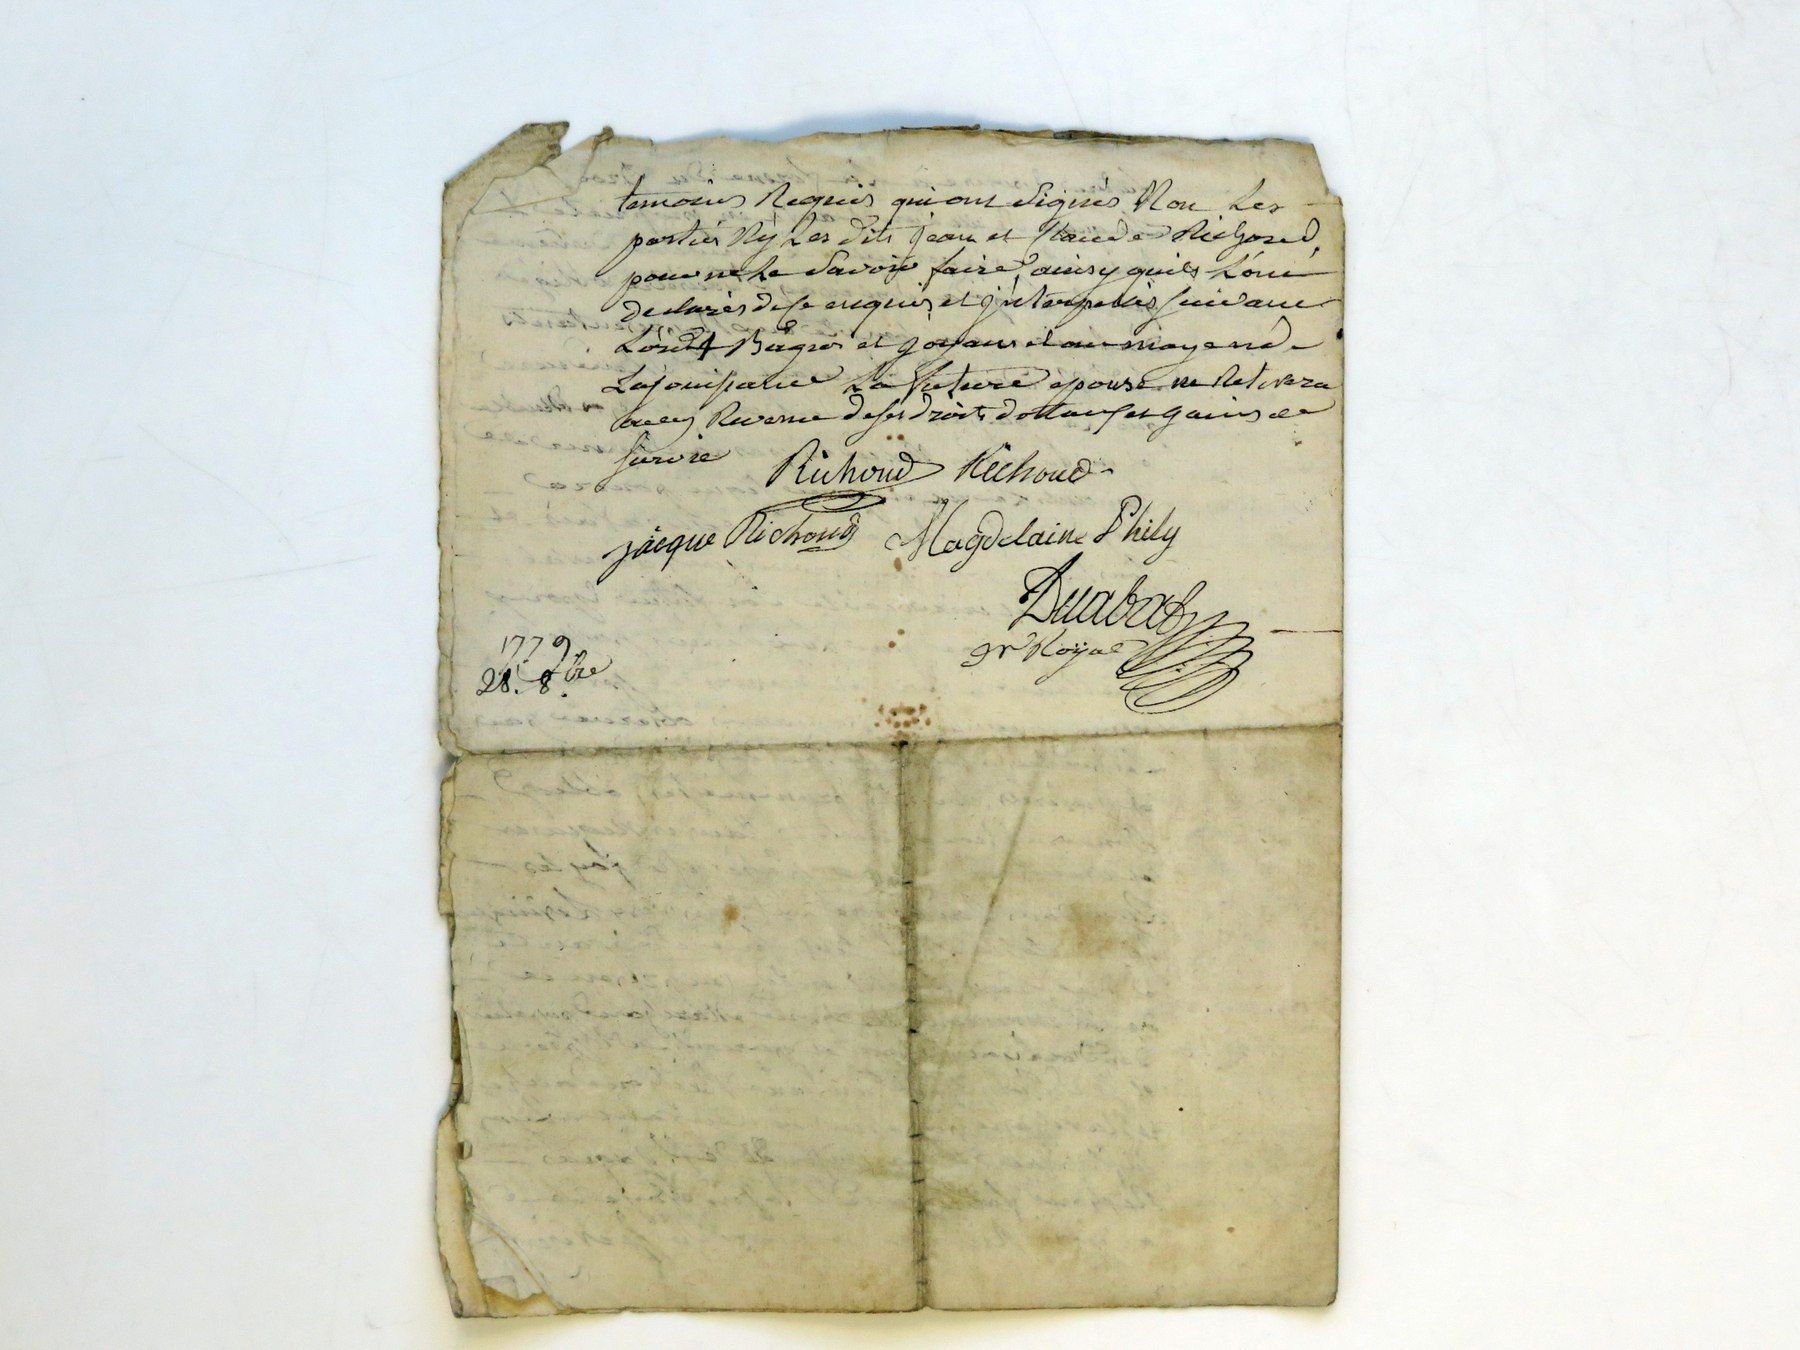 temoins Requis qui ont signés Non Les
parties Ny Les dits jean et Claude Richard
pour ne Le Savoir faire ainsy quils L'ont
declarés de ce enquis et jnterpellés suivant
L'ord. Bagues et joyaux et au moyen de
La jouissance La future epouse ne Retirera
aucun Revenu de ses droits dottaux et gains de
survie
Richoud Richoud
jacque Richoud Magdelaine Phily
nre Royal
1779
28. 8bre